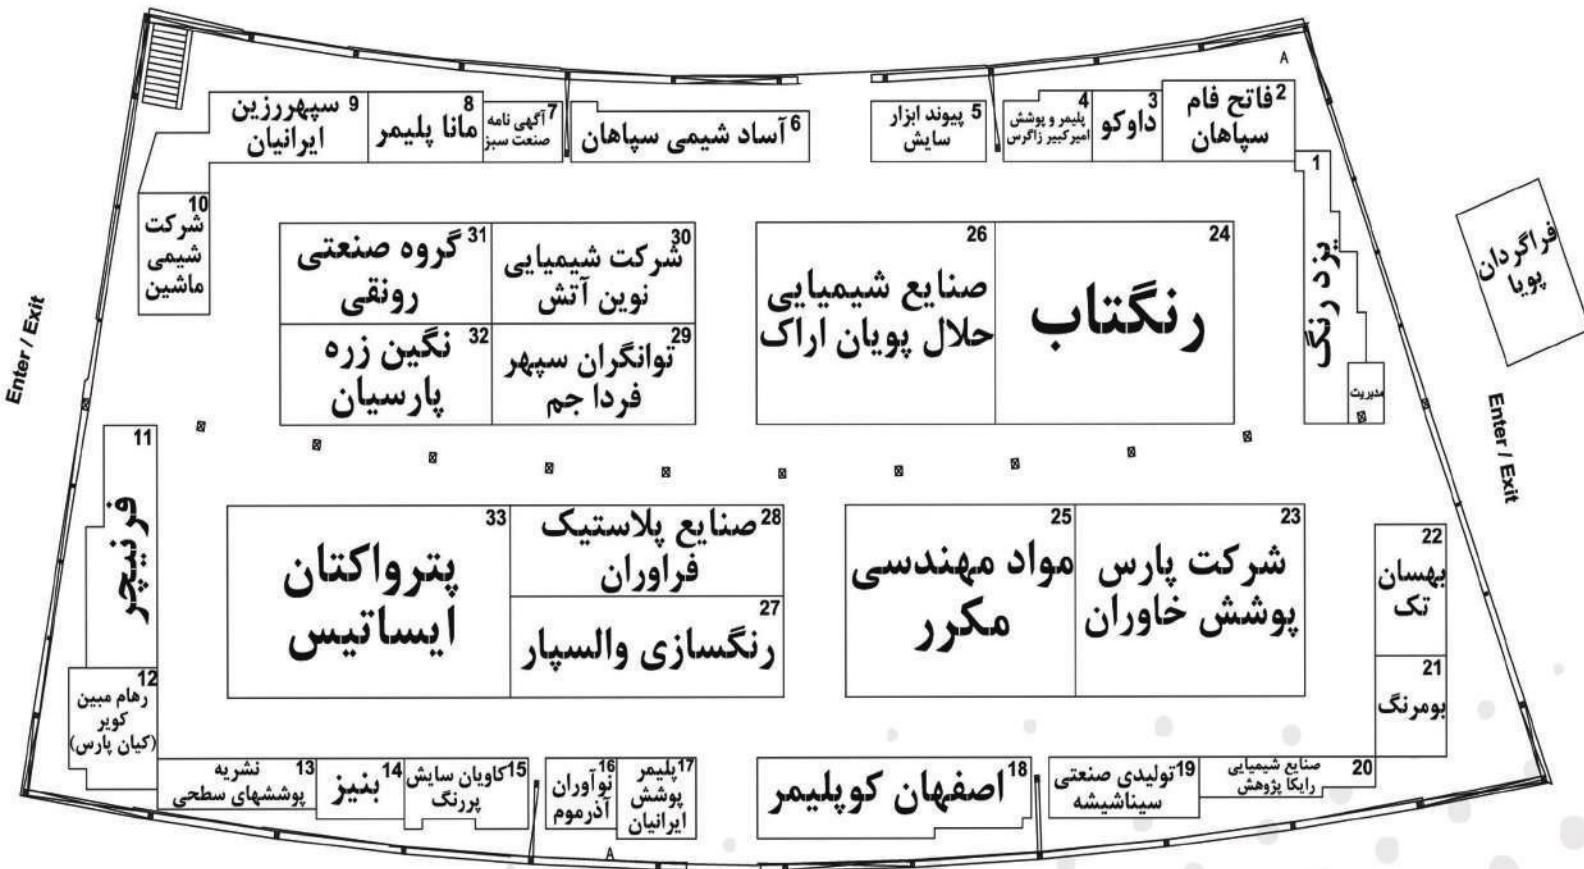 9 سپهررزین
ایرانیان
8
مانا پلیمر
7 آگهی نامه
صنعت سبز
6
آساد شیمی سپاهان
5 پیوند ابزار
سایش
4
پلیمر و پوشش
امیرکبیر زاگرس
3
داوکو
A
2 فاتح فام
سپاهان
1
یزد رنگ
مدیریت
فراگردان
پویا
10
شرکت
شیمی
ماشین
31
گروه صنعتی
رونقی
30
شرکت شیمیایی
نوین آتش
26
صنایع شیمیایی
حلال پویان اراک
24
رنگتاب
32 نگین زره
پارسیان
29
توانگران سپهر
فردا جم
Enter / Exit
Enter / Exit
11
فرنیچر
33
پترواکتان
ایساتیس
28 صنایع پلاستیک
فراوران
27
رنگسازی والسپار
25
مواد مهندسی
مکرر
23
شرکت پارس
پوشش خاوران
22
بهسان
تک
21
بومرنگ
12
رهام مبین
کویر
(کیان پارس)
13 نشریه
پوششهای سطحی
14
بنیز
15 کاویان سایش
پررنگ
16
نوآوران
آذرموم
17 پلیمر
پوشش
ایرانیان
18
اصفهان کوپلیمر
19 تولیدی صنعتی
سیناشیشه
20 صنایع شیمیایی
رایکا پژوهش
A